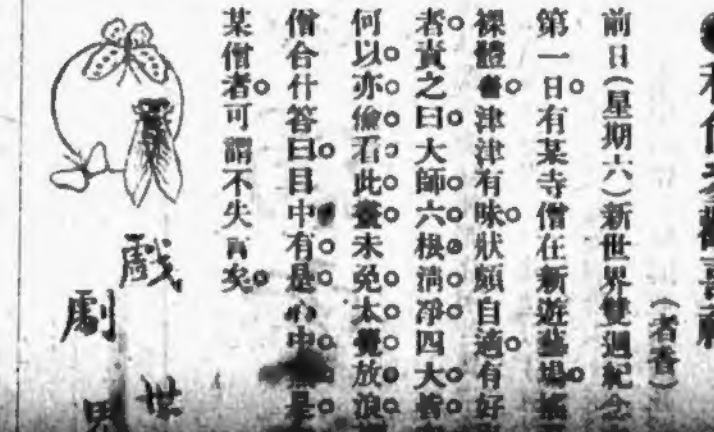 (者香)
前日(星期六)新世界雙週紀念
第一日有某寺僧在新遊藝場
裸體 津津有味狀頗自適有好
者責之曰大師六根淸净四大皆
何以亦偸看此 未免太覺放浪
僧合什答曰目中有是心中 是
某僧者可謂不失 矣
戲世
劇界